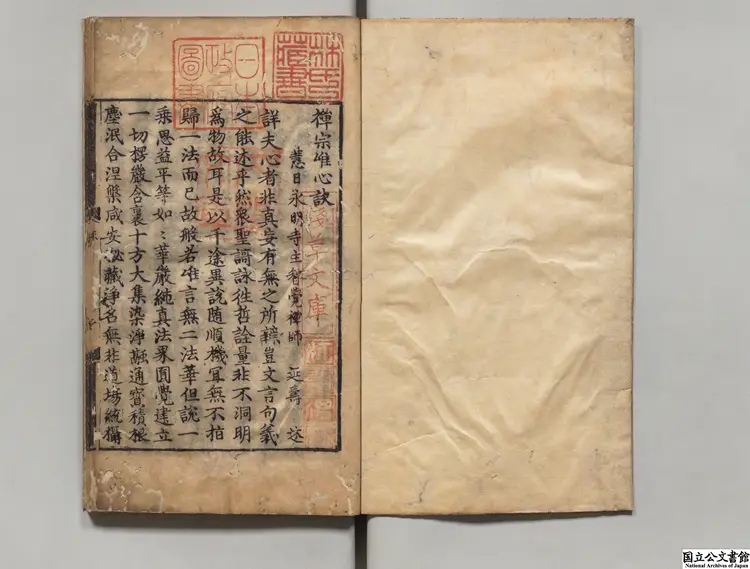 林氏藏書
日本政府圖書
禪宗唯心訣
慧日永明寺主智覺禪師 延壽 述
詳夫心者非真妄有無之所辯豈文言句義
之能述乎然衆聖謌詠徃哲詮量非不洞明
爲物故耳是以千途異說隨順機冝無不指
歸一法而已故般若唯言無二法華但說一
乘思益平等如〻華嚴純真法界圓覺建立
一切楞嚴含裹十方大集染淨融通寶積根
塵泯合涅槃咸安祕藏淨名無非道場統攝
淺草文庫
国立公文書館
National Archives of Japan